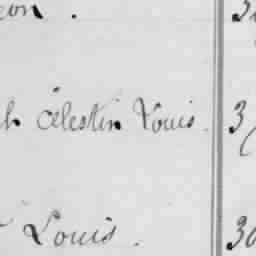 eon .
h Célestin Louis . 3
Louis . 30